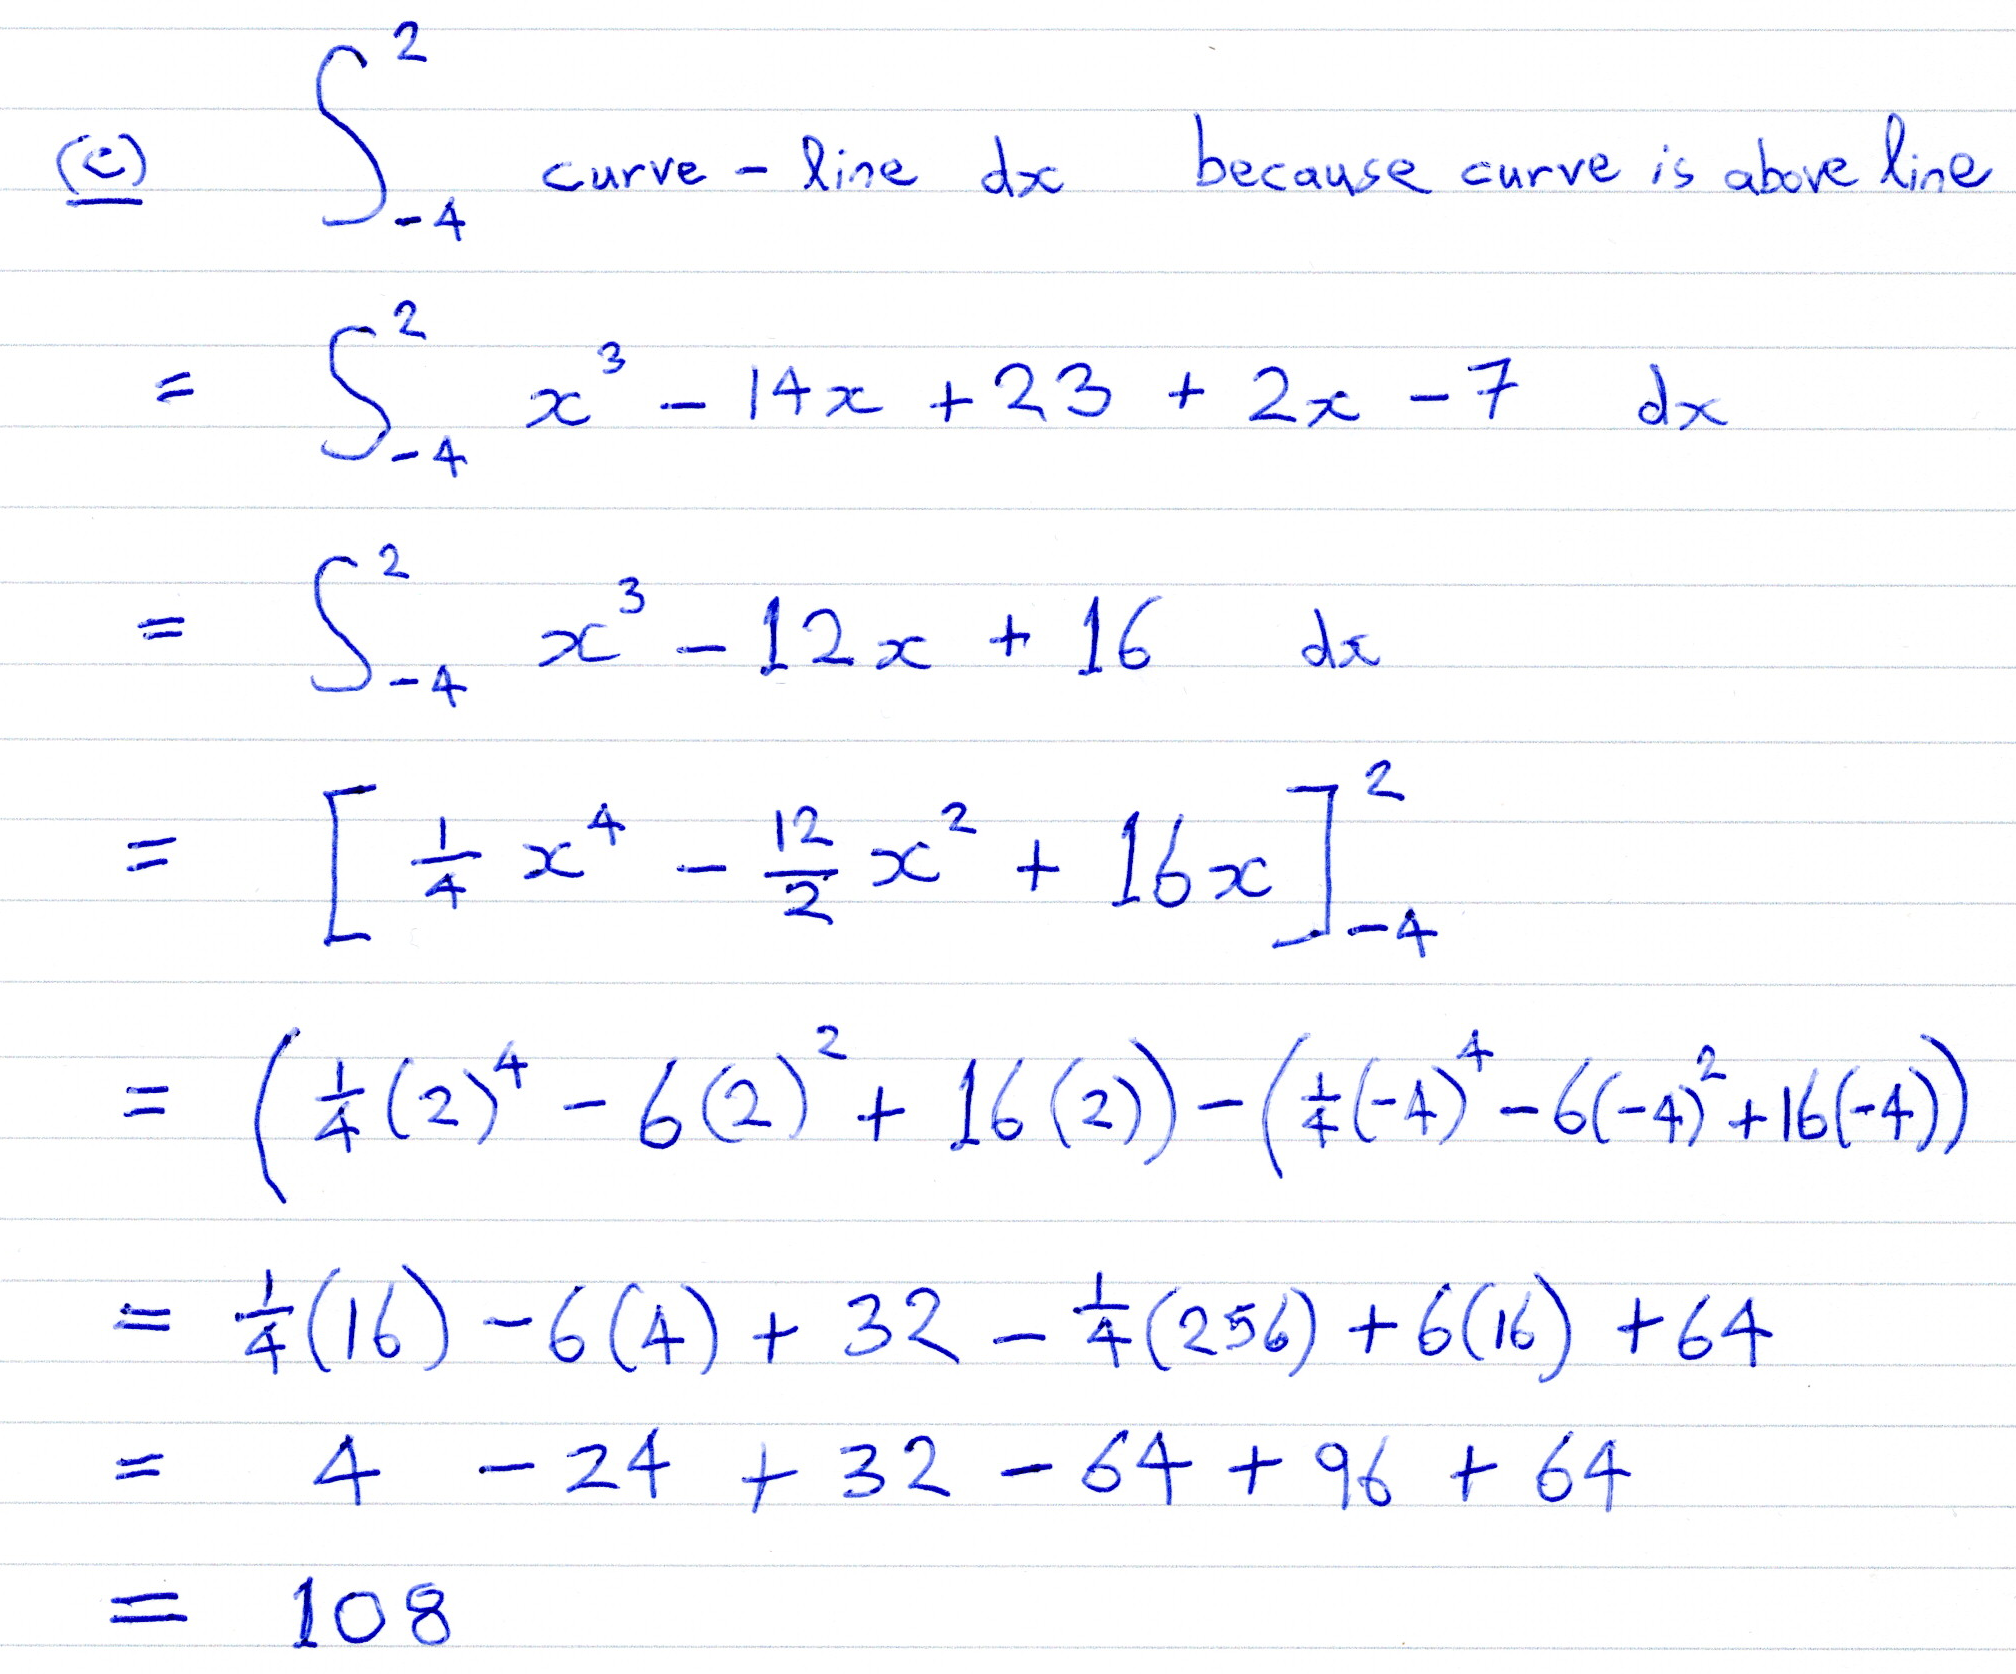 (c) ∫₋₄² curve - line dx because curve is above line
= ∫₋₄² x³ - 14x + 23 + 2x - 7 dx
= ∫₋₄² x³ - 12x + 16 dx
= [1/4 x⁴ - 12/2 x² + 16x]₋₄²
= (1/4(2)⁴ - 6(2)² + 16(2)) - (1/4(-4)⁴ - 6(-4)² + 16(-4))
= 1/4(16) - 6(4) + 32 - 1/4(256) + 6(16) + 64
= 4 - 24 + 32 - 64 + 96 + 64
= 108